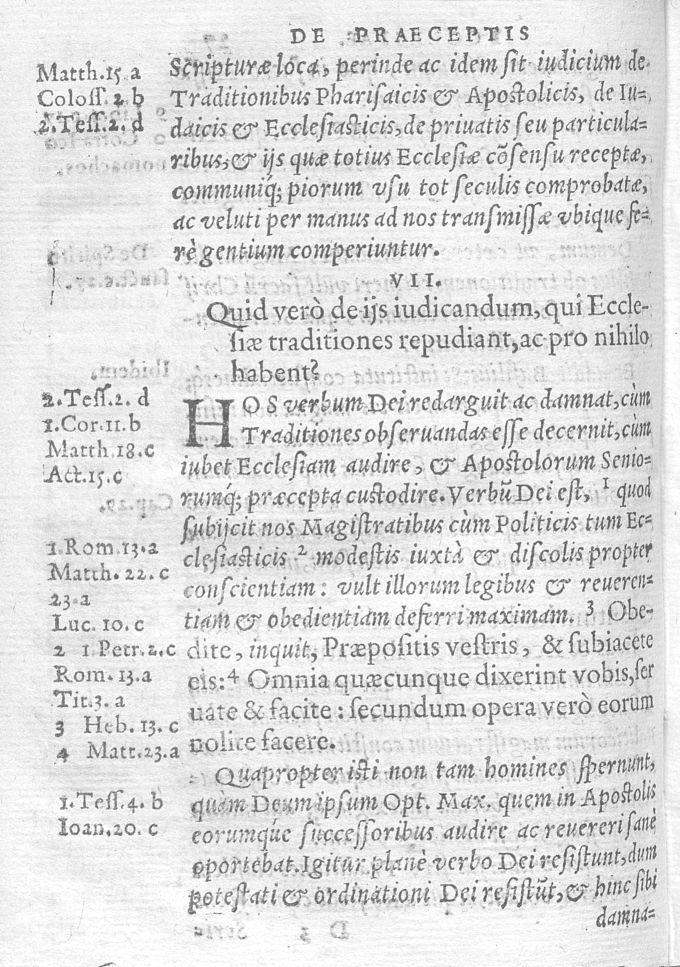 DE PRAECEPTIS
Matth.15 a
Coloss. 2. b
2. Tess. 2. d
Scripturæ loca, perinde ac idem sit iudicium de
Traditionibus Pharisaicis & Apostolicis, de Iu-
daicis & Ecclesiasticis, de priuatis seu particula-
ribus, & ijs quæ totius Ecclesiæ cõsensu receptæ,
communiq́; piorum vsu tot seculis comprobatæ,
ac veluti per manus ad nos transmissæ vbique fe-
rè gentium comperiuntur.
VII.
Quid verò de ijs iudicandum, qui Eccle-
siæ traditiones repudiant, ac pro nihilo
habent?
2. Tess. 2. d
1. Cor. 11. b
Matth. 18. c
Act. 15. c
HOS verbum Dei redarguit ac damnat, cùm
Traditiones obseruandas esse decernit, cùm
iubet Ecclesiam audire, & Apostolorum Senio-
rumq́; præcepta custodire. Verbũ Dei est, 1 quod
subijcit nos Magistratibus cùm Politicis tum Ec-
clesiasticis 2 modestis iuxtà & discolis propter
conscientiam: vult illorum legibus & reueren-
tiam & obedientiam deferri maximam. 3 Obe-
dite, inquit, Præpositis vestris, & subiacete
eis: 4 Omnia quæcunque dixerint vobis, ser
uate & facite: secundum opera verò eorum
nolite facere.
1. Rom. 13. a
Matth. 22. c
23. a
Luc. 10. c
2 1 Petr. 2. c
Rom. 13. a
Tit. 3. a
3 Heb. 13. c
4 Matt. 23. a
Quapropter isti non tam homines spernunt,
quàm Deum ipsum Opt. Max. quem in Apostolis
eorumq́ue successoribus audire ac reuereri sanè
oportebat. Igitur planè verbo Dei resistunt, dum
potestati & ordinationi Dei resistũt, & hinc sibi
damna-
1. Tess. 4. b
Ioan. 20. c